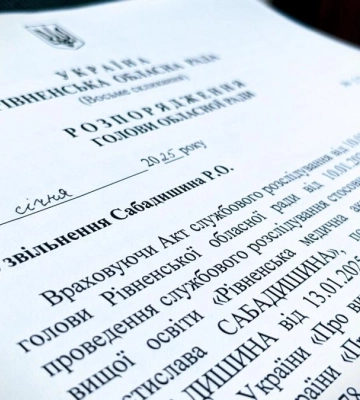 УКРАЇНА
РІВНЕНСЬКА ОБЛАСНА РАДА
(Восьме скликання)
РОЗПОРЯДЖЕННЯ
ГОЛОВИ ОБЛАСНОЇ РАДИ
січня 2025 року
звільнення Сабадишина Р.О.
Враховуючи Акт службового розслідування від
голови Рівненської обласної ради від 10.01.
проведення службового розслідування
вищої освіти «Рівненська медична
САБАДИШИНА»,
від 13.01.2025
України «Про
України